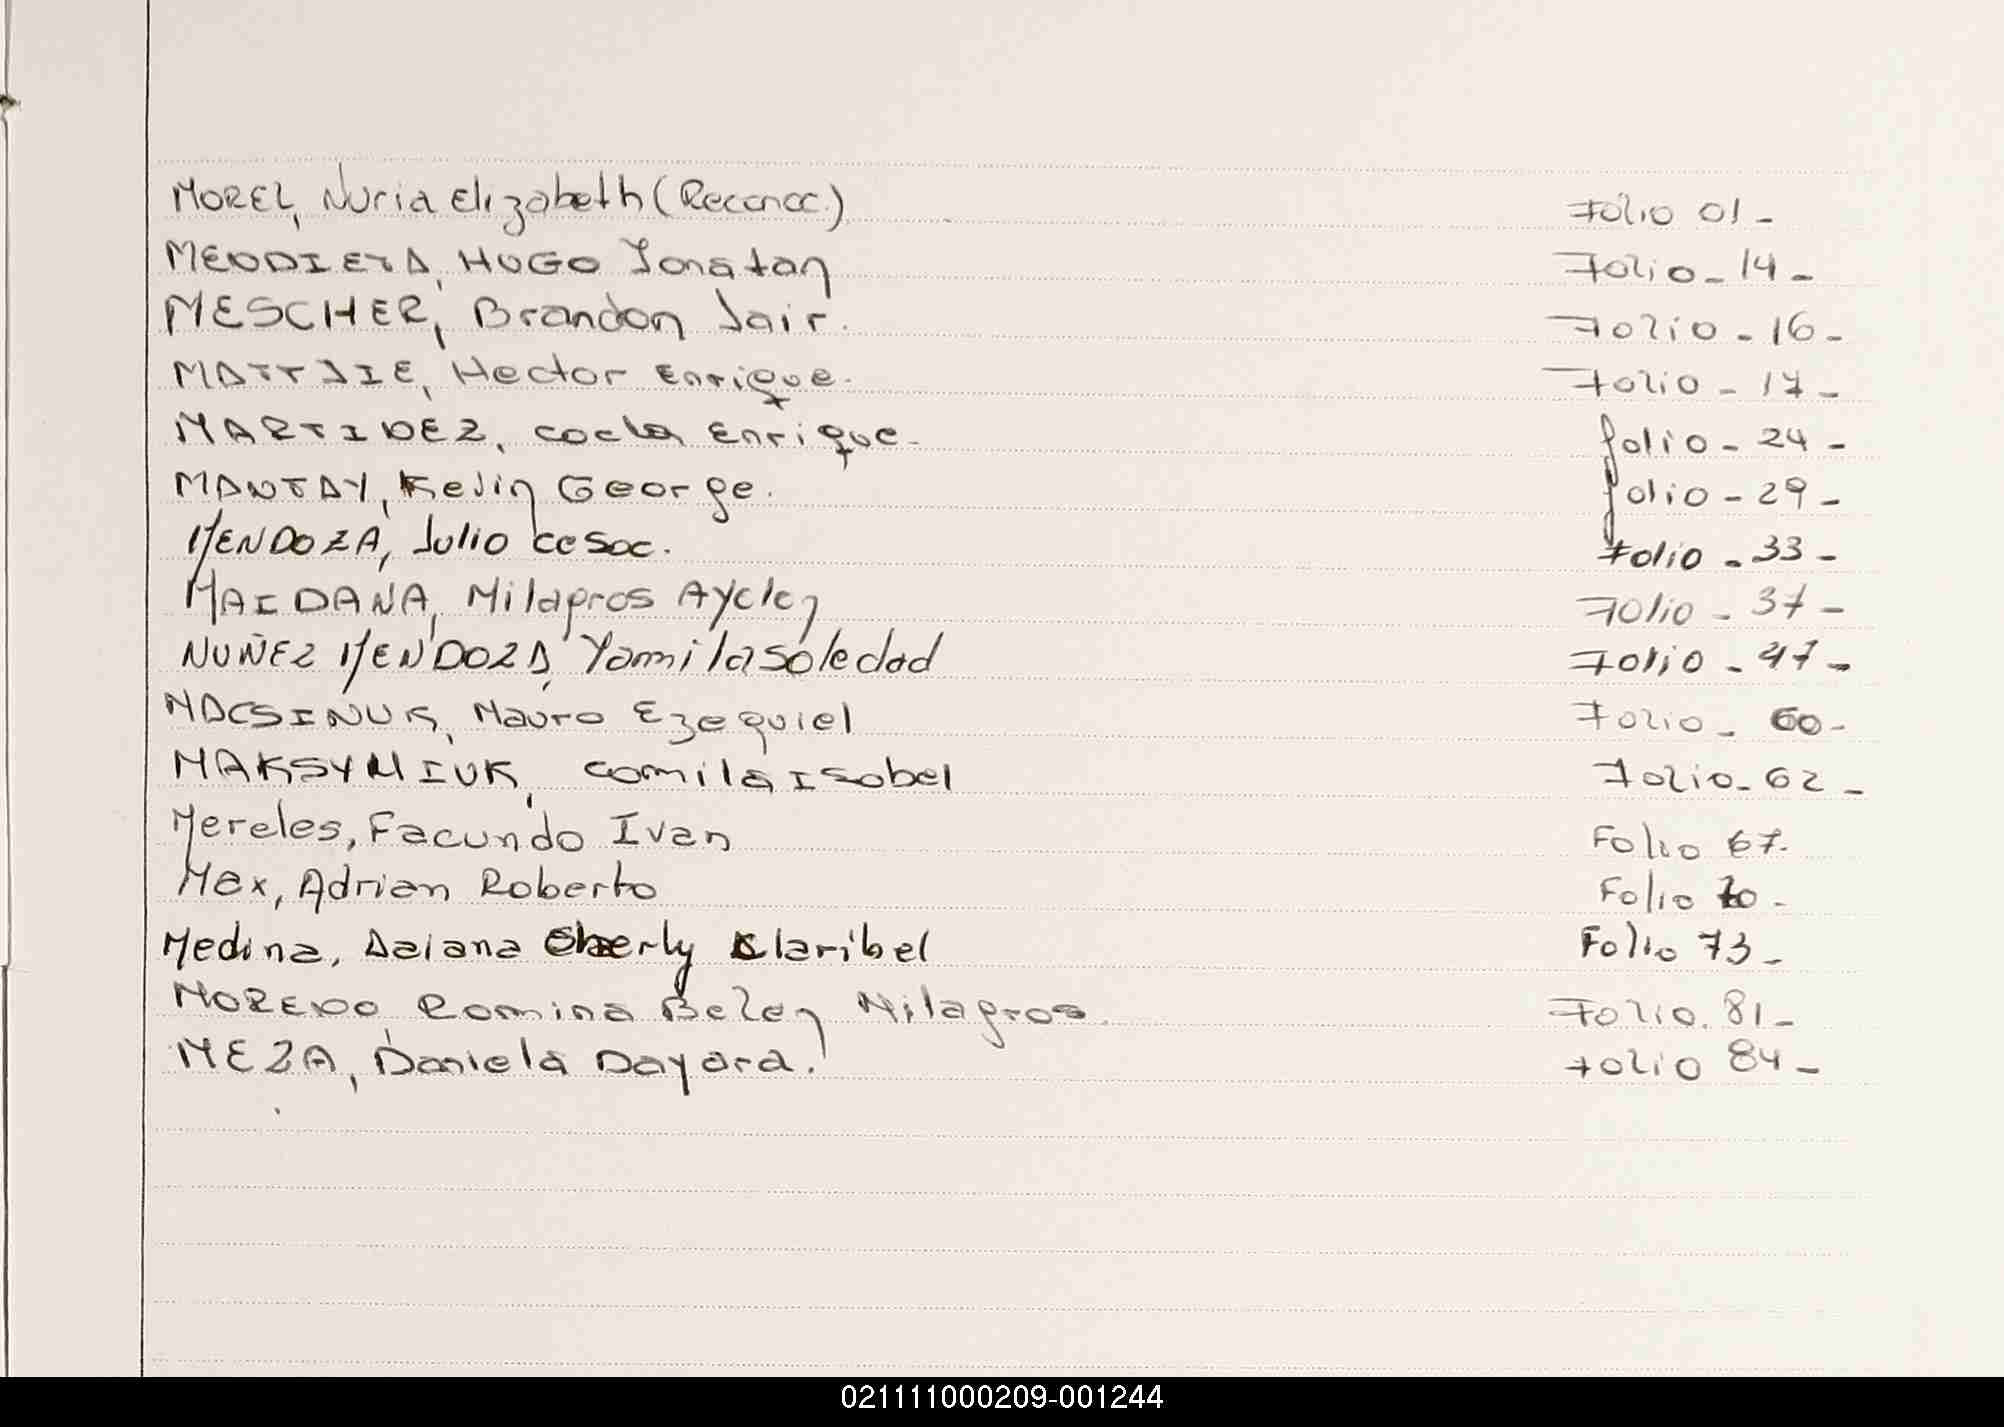 MOREL, Nuria Elizabeth (Reconoc.) Folio 01-
MENDIETA, HUGO Jonatan Folio - 14 -
MESCHER, Brandon Jair. Folio - 16 -
MATTJIE, Hector Enrique. Folio - 17 -
MARTINEZ, Enrique - folio - 24 -
MANTAY, Kevin George. folio - 29 -
MENDOZA, Julio cesar. Folio - 33 -
MAIDANA, Milagros Aycleen Folio - 37 -
NUÑEZ MENDOZA, Yamila soledad Folio - 47 -
MACSINUK, Mauro Ezequiel Folio - 60 -
MAKSYMIUK, camila Isabel Folio - 62 -
Mereles, Facundo Ivan Folio 67-
Max, Adrian Roberto Folio 70 -
Medina, Daiana Sherly Claribel Folio 73 -
MORENO, Romina Belen Milagros. Folio. 81 -
MEZA, Daniela Dayara. folio 84 -
021111000209-001244